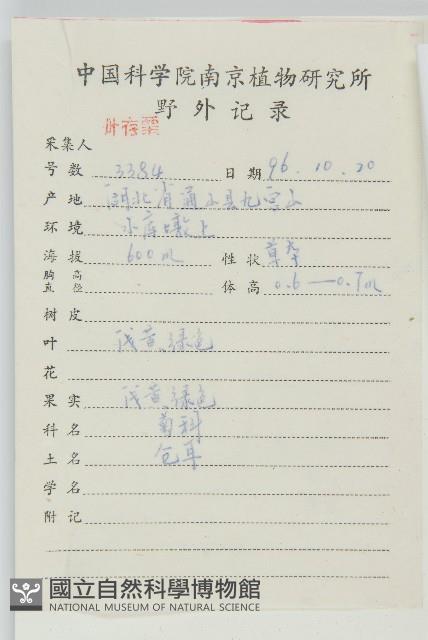 中国科学院南京植物研究所
野外记录
采集人
号数 3384 日期 96.10.20
产地 湖北省通山县九宫山
环境 水库墩上
海拔 600m 性状 草本
胸高直径 体高 0.6—0.7m
树皮
叶 浅黄绿色
花
果实 浅黄绿色
科名 菊科
土名 仓耳
学名
附记
國立自然科學博物館
NATIONAL MUSEUM OF NATURAL SCIENCE